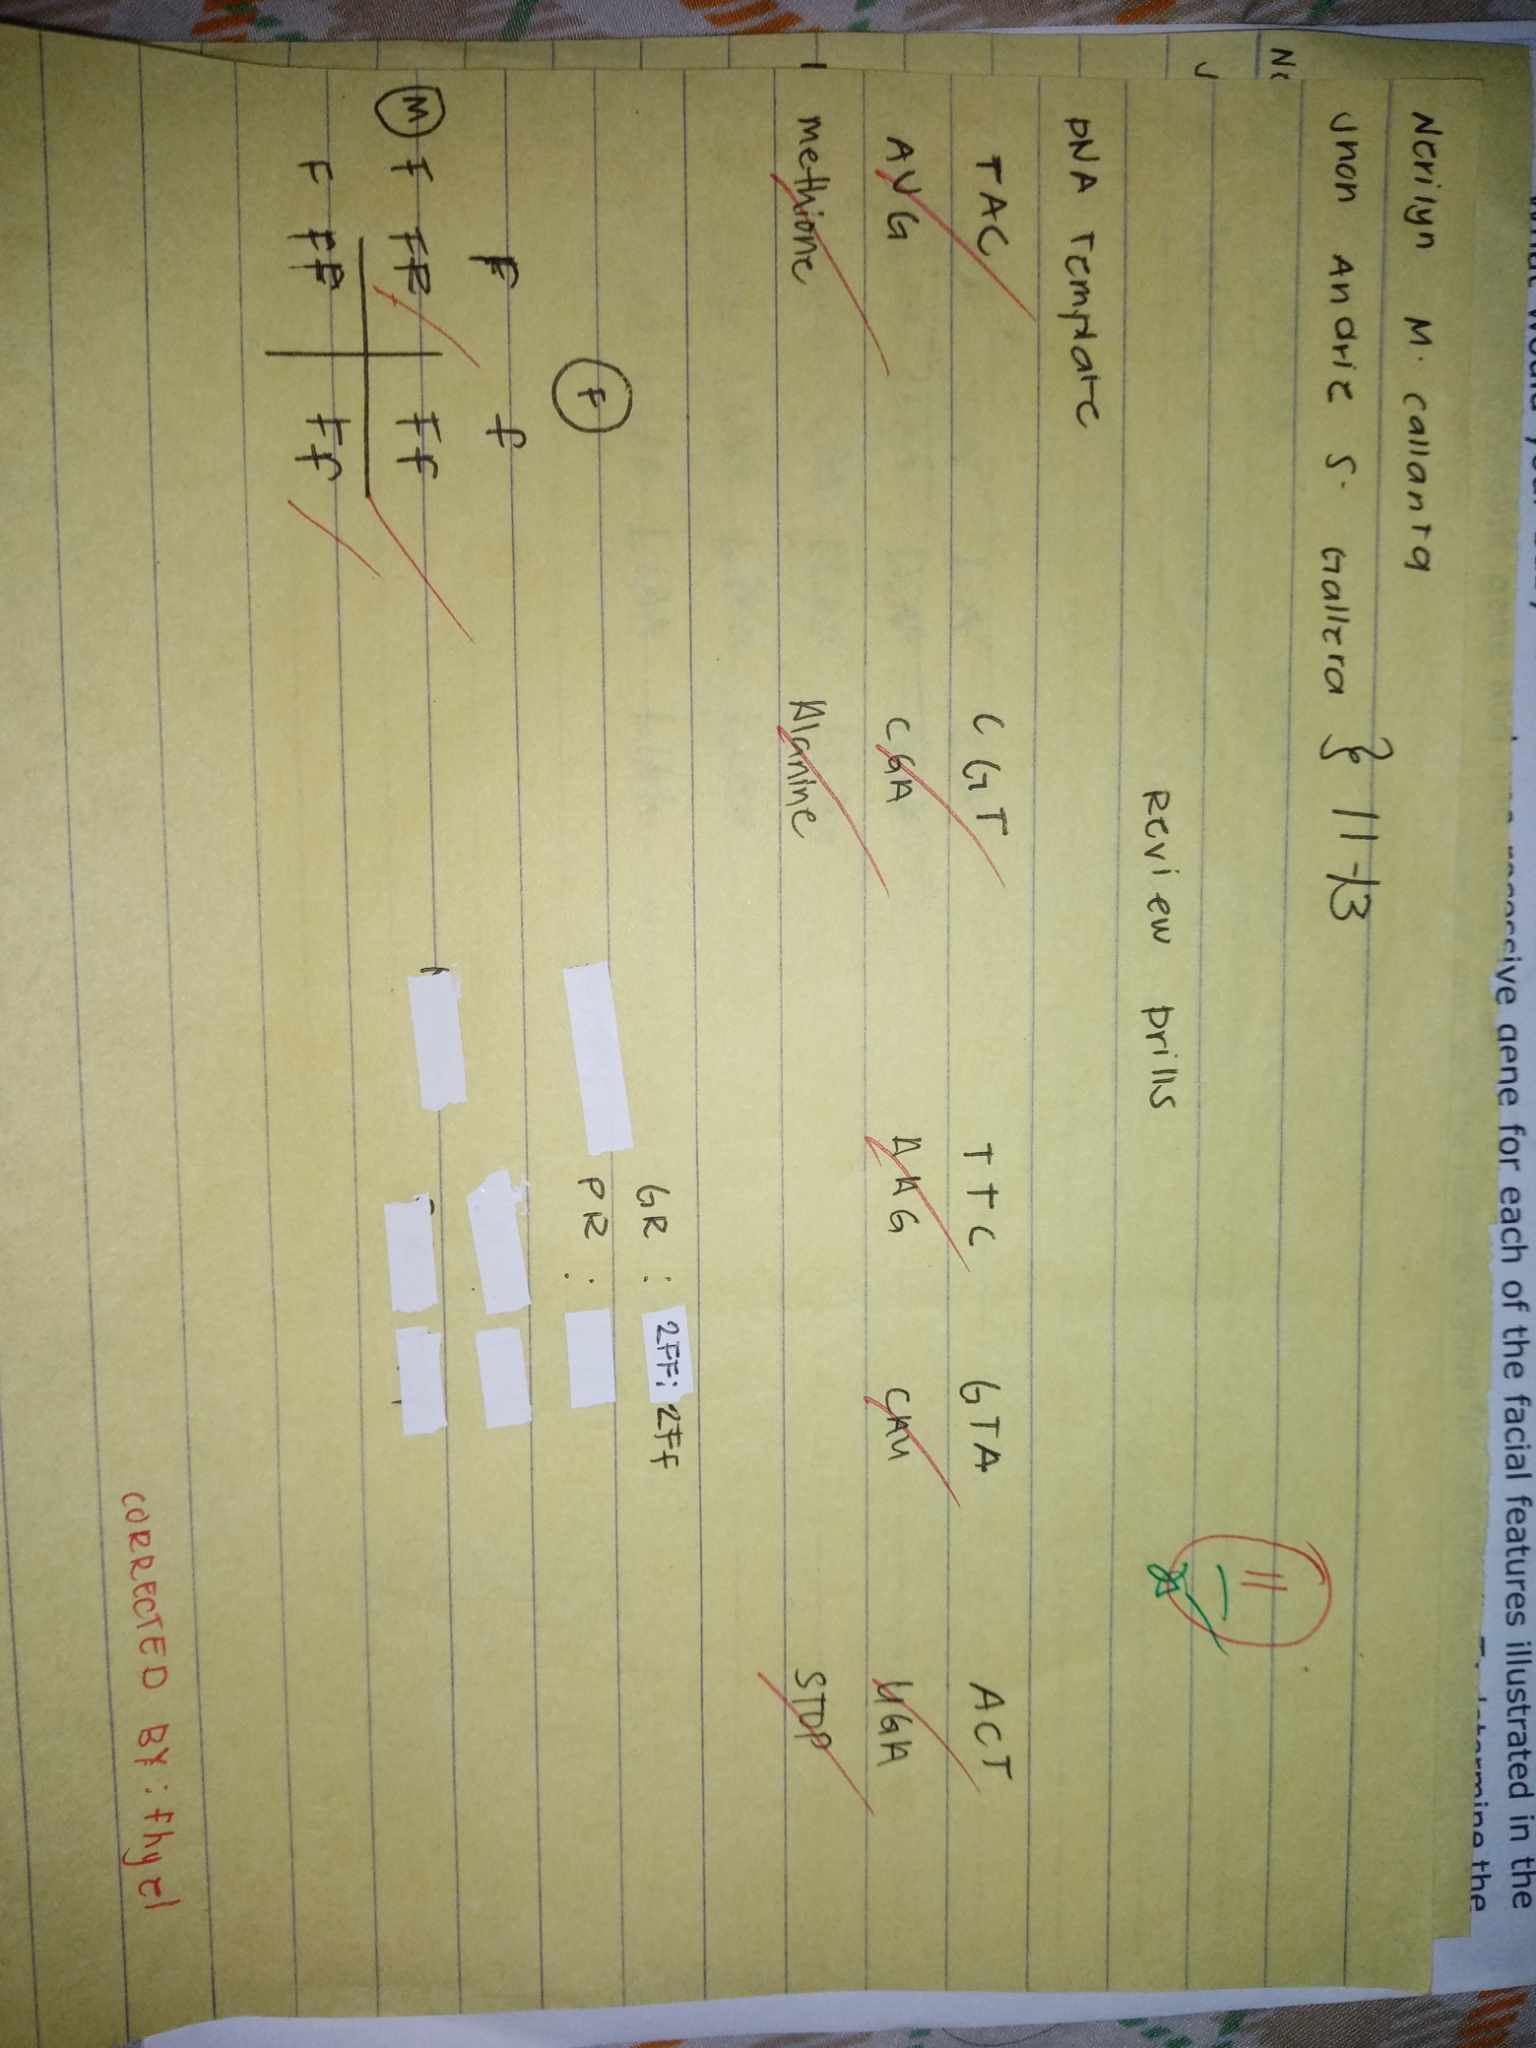 recessive gene for each of the facial features illustrated in the
determine the
Nerilyn M. Callanta
Jhon Andrie S. Gallera } 11-13
11
Review Drills
DNA Template
TAC CGT TTC GTA ACT
AUG CGA AAG CAU UGA
Methione Alanine STOP
GR : 2FF; 2Ff
F
PR :
F f
M F FF Ff
F FF Ff
CORRECTED BY: fhyel